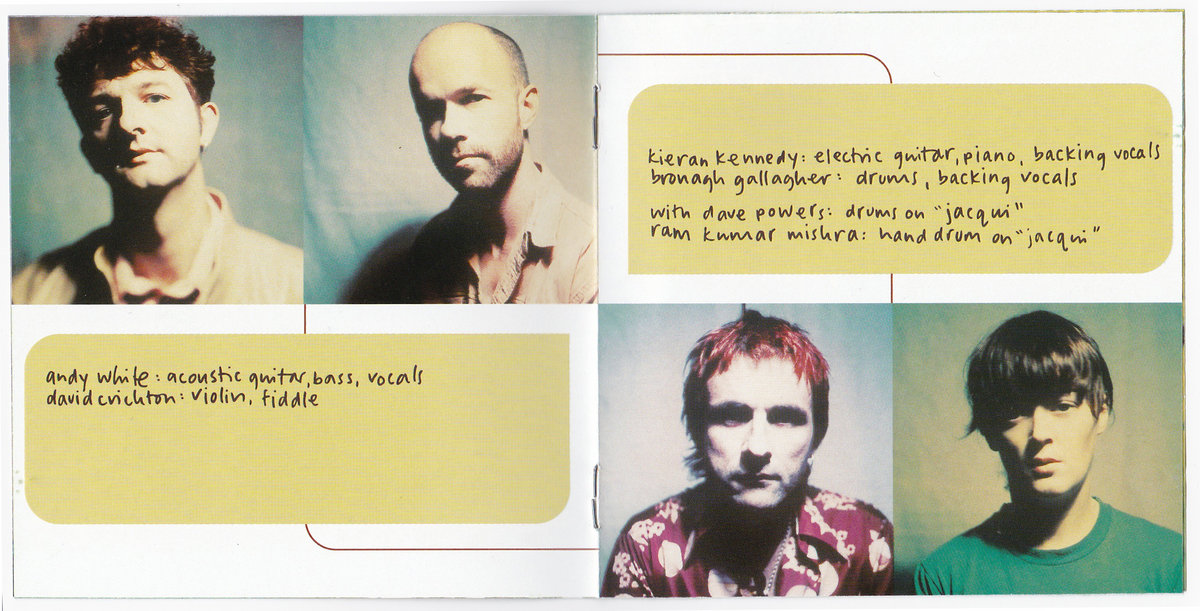 andy white: acoustic guitar, bass, vocals
david crichton: violin, fiddle
kieran kennedy: electric guitar, piano, backing vocals
bronagh gallagher: drums, backing vocals
with dave powers: drums on "jacqui"
ram kumar mishra: hand drum on "jacqui"